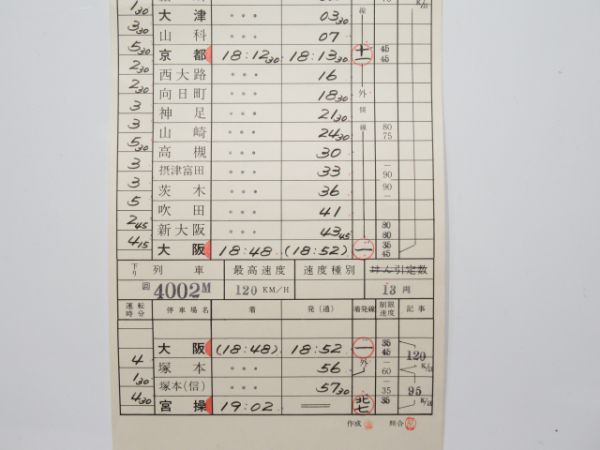 K/H
1 30 大津 ・・・ 03 30 線
3 30 山科 ・・・ 07
5 30 京都 18:12 30 18:13 30 十一 45 45
2 30 西大路 ・・・ 16
2 30 向日町 ・・・ 18 30 外
3 神足 ・・・ 21 30 側
3 山崎 ・・・ 24 30 線 80 75
5 30 高槻 ・・・ 30
3 摂津富田 ・・・ 33 90
3 茨木 ・・・ 36 90
5 吹田 ・・・ 41
2 45 新大阪 ・・・ 43 45 80 80
4 15 大阪 18:48 (18:52) 一 35 45
下り 列車 最高速度 速度種別 けん引定数
回4002M 120 KM/H 13両
運転時分 停車場名 着 発(通) 着発線 制限速度 記事
大阪 (18:48) 18:52 一 35 45
4 塚本 ・・・ 56 外 60 120 K/H
1 30 塚本(信) ・・・ 57 30 35 95
4 30 宮操 19:02 == 北七 35 K/H
作成 照合